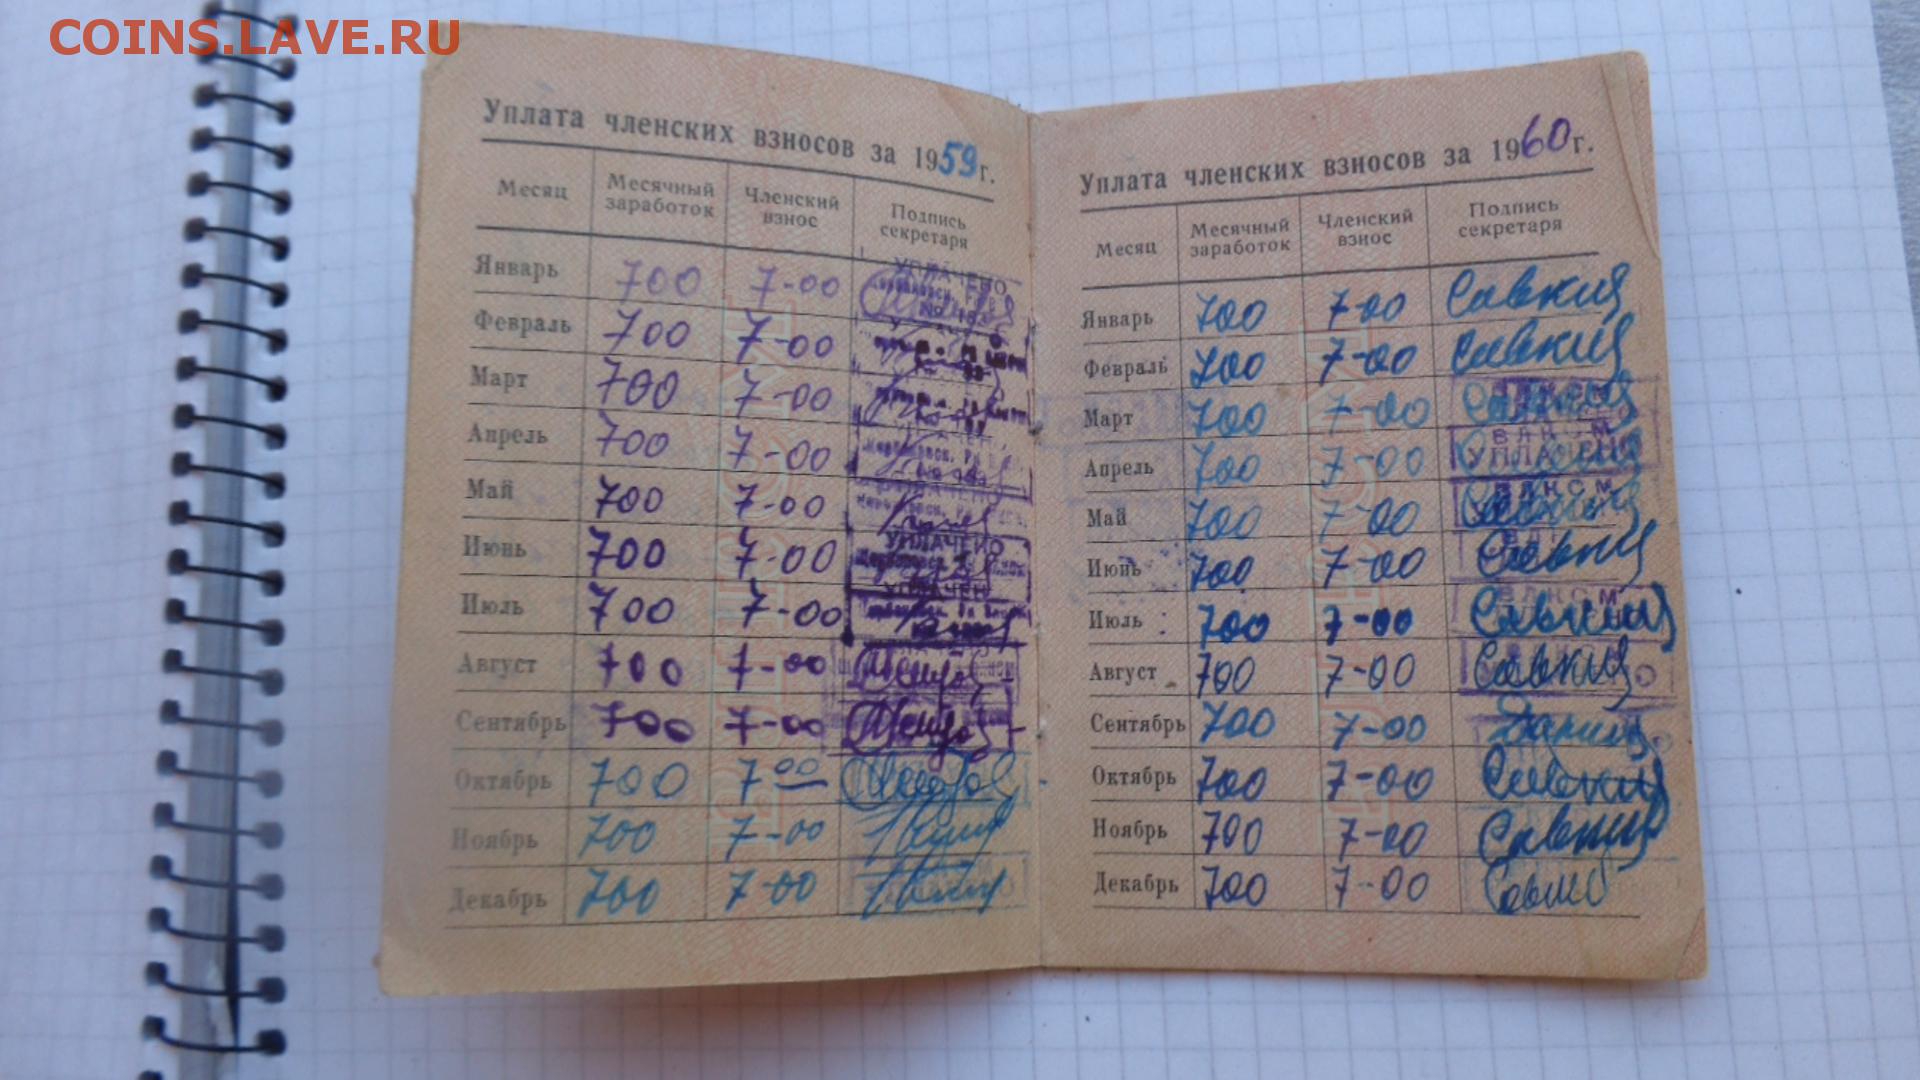 COINS.LAVE.RU
Уплата членских взносов за 1959г.
Месяц Месячный заработок Членский взнос Подпись секретаря
Январь 700 7-00 УПЛАЧЕНО
Февраль 700 7-00
Март 700 7-00
Апрель 700 7-00
Май 700 7-00
Июнь 700 7-00 УПЛАЧЕНО
Июль 700 7-00 УПЛАЧЕН
Август 700 7-00
Сентябрь 700 7-00
Октябрь 700 7-00
Ноябрь 700 7-00
Декабрь 700 7-00
Уплата членских взносов за 1960г.
Месяц Месячный заработок Членский взнос Подпись секретаря
Январь 700 7-00
Февраль 700 7-00
Март 700 7-00
Апрель 700 7-00 ВЛКСМ УПЛАЧЕНО
Май 700 7-00 ВЛКСМ
Июнь 700 7-00
Июль 700 7-00 ВЛКСМ
Август 700 7-00
Сентябрь 700 7-00
Октябрь 700 7-00
Ноябрь 700 7-00
Декабрь 700 7--00